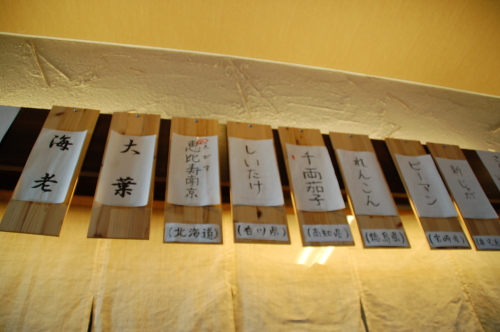 海老
大葉
恵比寿南京
(北海道)
しいたけ
(香川県)
千両茄子
(高知県)
れんこん
(徳島県)
ピーマン
(宮崎県)